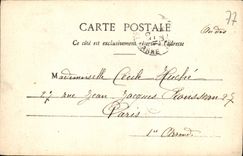 77
CARTE POSTALE
Ce côté est exclusivement réservé à l'adresse
Mademoiselle Cécile
27 rue Jean-Jacques Rousseau 27
Paris
1er Arrond.